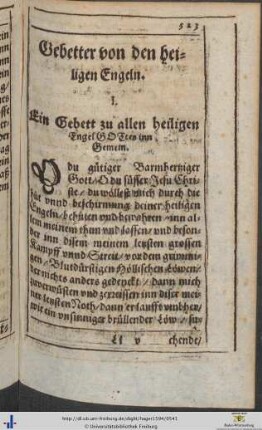 523
Gebetter von den hei-
ligen Engeln.
I.
Ein Gebett zu allen heiligen
Engel GOttes inn
Gemein.
O du gütiger Barmhertziger
Gott/ O du süsser Jesu Chri-
ste/ du wöllest mich durch die
hüt vnnd beschirmung deiner heiligen
Engeln/ behüten vnd bewahren/ inn al-
lem meinem thun vnd lassen/ vnd beson-
der inn disem meinem letsten grossen
Kampff vnnd Streit/ vor dem grimmi-
gen/ Blutdürstigen Höllischen Löwen/
der nichts anders gedenckt/ dann mich
zuverwüsten vnd zerreissen inn diser mei-
ner letsten Noth/ dann er laufft vmbher/
wie ein vnsinniger brüllender Löw/ su-
Ll v
chende/
http://dl.ub.uni-freiburg.de/diglit/hager1594/0541
© Universitätsbibliothek Freiburg